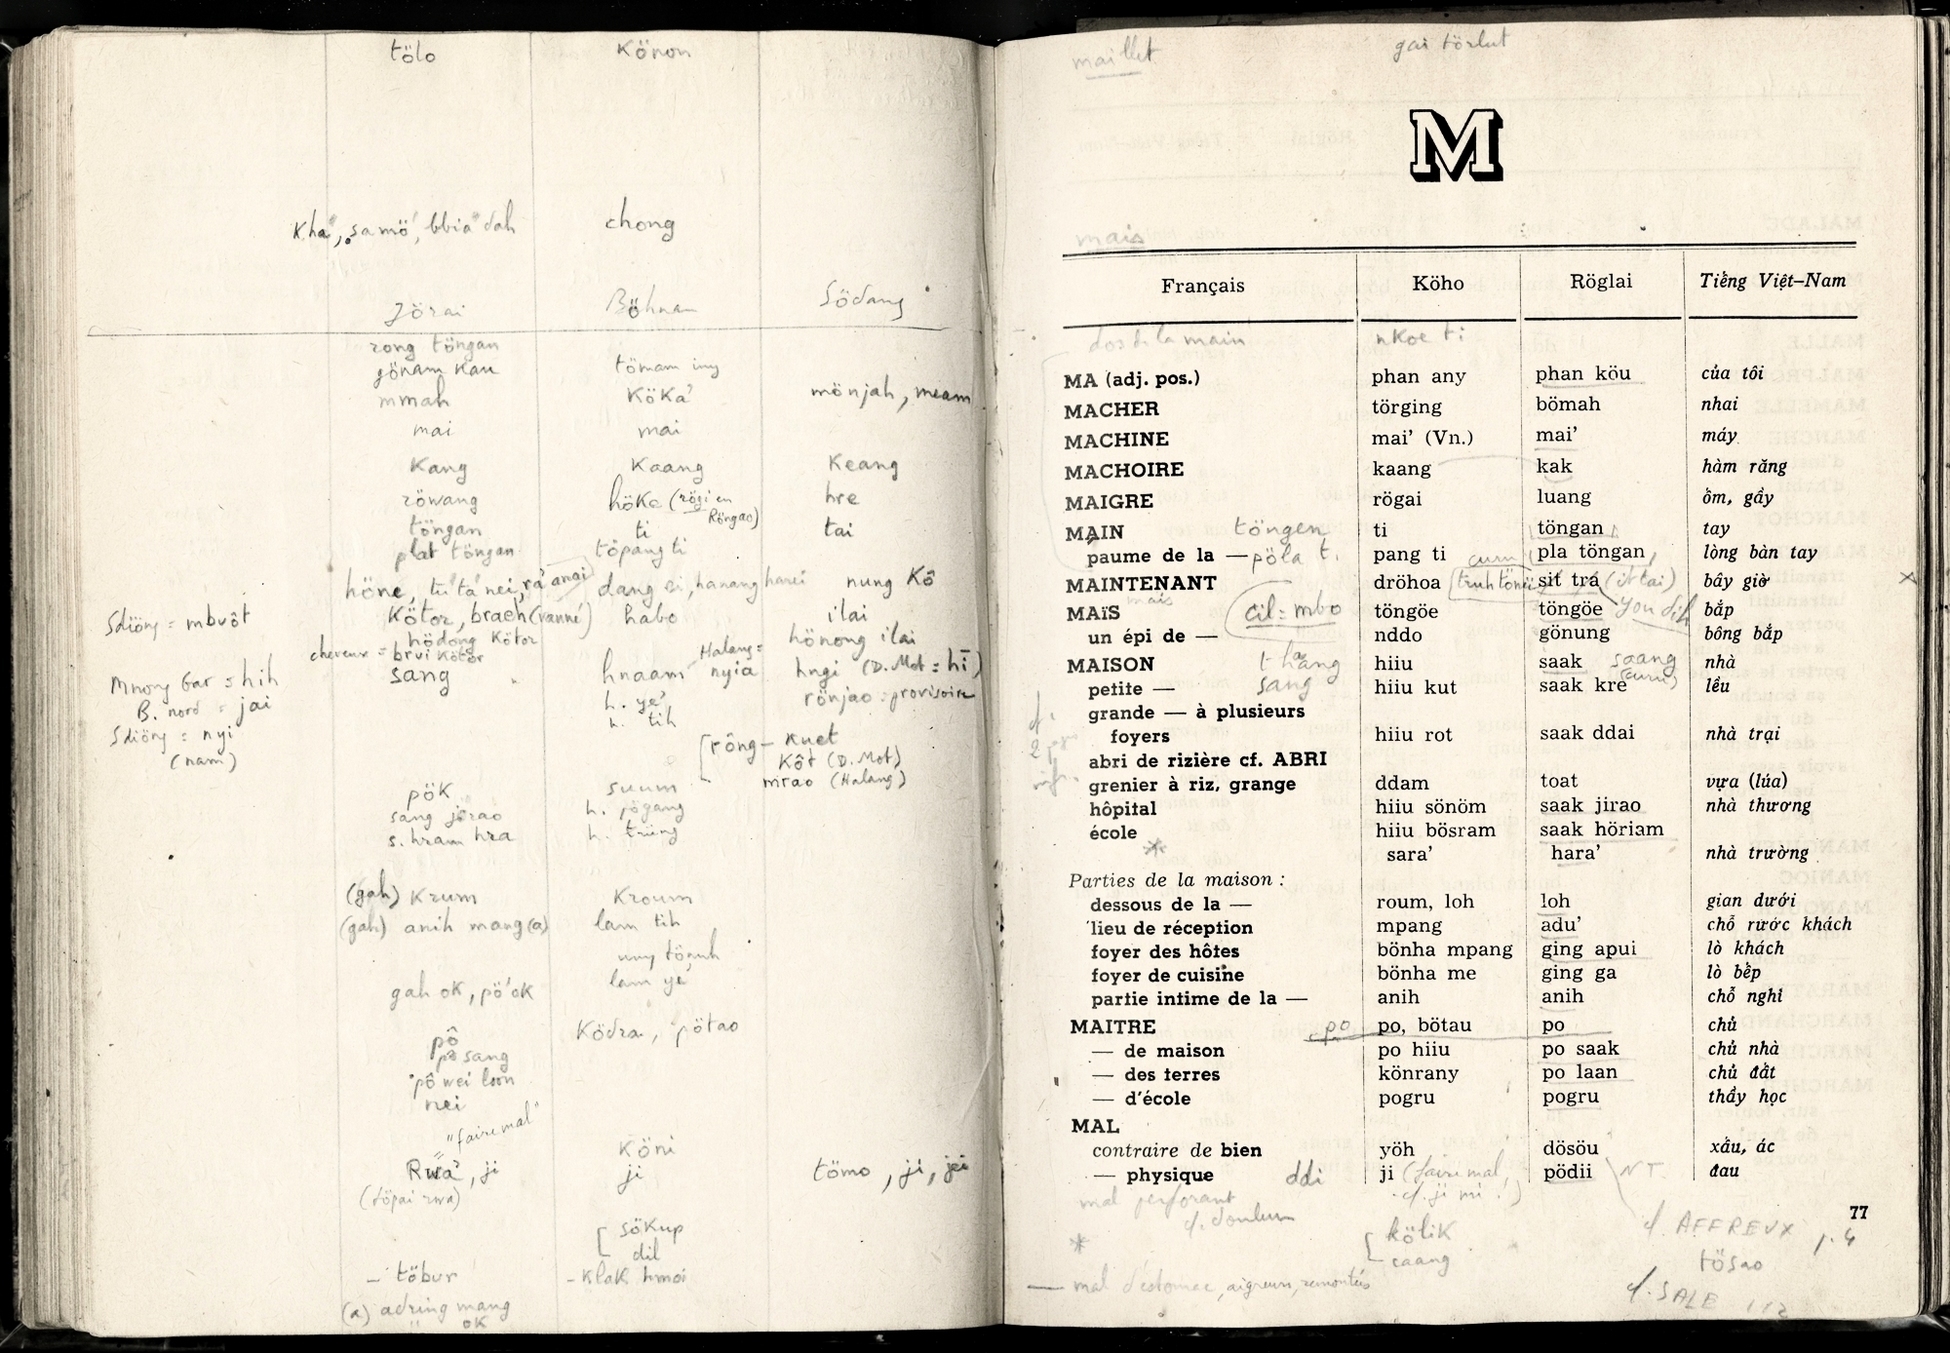 tölo Könon
Kha', samö', bbia' dah chong
Jörai Böhnar Södang
rong töngan
gönam Kau tömam iny
mmah KöKa' mönjah, meam
mai mai
Kang Kaang Keang
röwang höke (rögi en Röngao) hre
töngan ti tai
plat töngan töpang ti
höne, tú tá nei, rá anai dang ei, hanang harei nung Kô
Sdiöng = mbuôt Kötor, braeh (vanné) habo ilai
hödong Kötor hönong ilai
cheveux = brvi Kötor Halang =
sang hnaam nyia hngi (D. Mot = hī)
Mnong Gar = hih h. ye' rönjao : provisoire
B. nord = jai h. tih
Sdiöng = nyi
(nam)
[rông — Kuet
Kôt (D. Mot)
mrao (Halang)
pök suum
sang jörao h. pögang
s. hram hra h. trüng
(gah) Krum Kroum
(gah) anih mang (a) lam tih
uny tönuh
gah oK, pö' oK lam ye'
Ködra, pötao
pô
pô sang
pô wei loon
nei
"faire mal"
Köni
Rwa', ji ji tömo, ji, jei
(töpai rwa)
[söKup
dil
— töbur - KlaK hmoi
(a) adring mang
" oK
maillet gai törlut
M
mais
Français Köho Röglai Tiếng Việt–Nam
dos de la main nKoe ti
MA (adj. pos.) phan any phan köu của tôi
MACHER törging bömah nhai
MACHINE mai’ (Vn.) mai’ máy
MACHOIRE kaang kak hàm răng
MAIGRE rögai luang ốm, gầy
MAIN töngen ti töngan tay
paume de la — pöla t. pang ti cum pla töngan lòng bàn tay
MAINTENANT dröhoa sit trá bây giờ
mais
MAïS cil = mbo töngöe töngöe you dih bắp
un épi de — nddo gönung bông bắp
MAISON thang hiiu saak saang nhà
petite — sang hiiu kut saak kre (cum) lều
grande — à plusieurs
foyers hiiu rot saak ddai nhà trại
abri de rizière cf. ABRI
grenier à riz, grange ddam toat vựa (lúa)
hôpital hiiu sönöm saak jirao nhà thương
école hiiu bösram saak höriam
sara’ hara’ nhà trường
Parties de la maison :
dessous de la — roum, loh loh gian dưới
lieu de réception mpang adu’ chỗ rước khách
foyer des hôtes bönha mpang ging apui lò khách
foyer de cuisine bönha me ging ga lò bếp
partie intime de la — anih anih chỗ nghỉ
MAITRE po po, bötau po chủ
— de maison po hiiu po saak chủ nhà
— des terres könrany po laan chủ đất
— d’école pogru pogru thầy học
MAL
contraire de bien yöh dösöu xấu, ác
— physique ddi ji (faire mal, pödii N T. đau
cf. ji mi !)
mal perforant
77
cf. AFFREUX p. 4
[kölik
caang
tösao
— mal d'estomac, aigreurs, remontées
cf. SALE 112